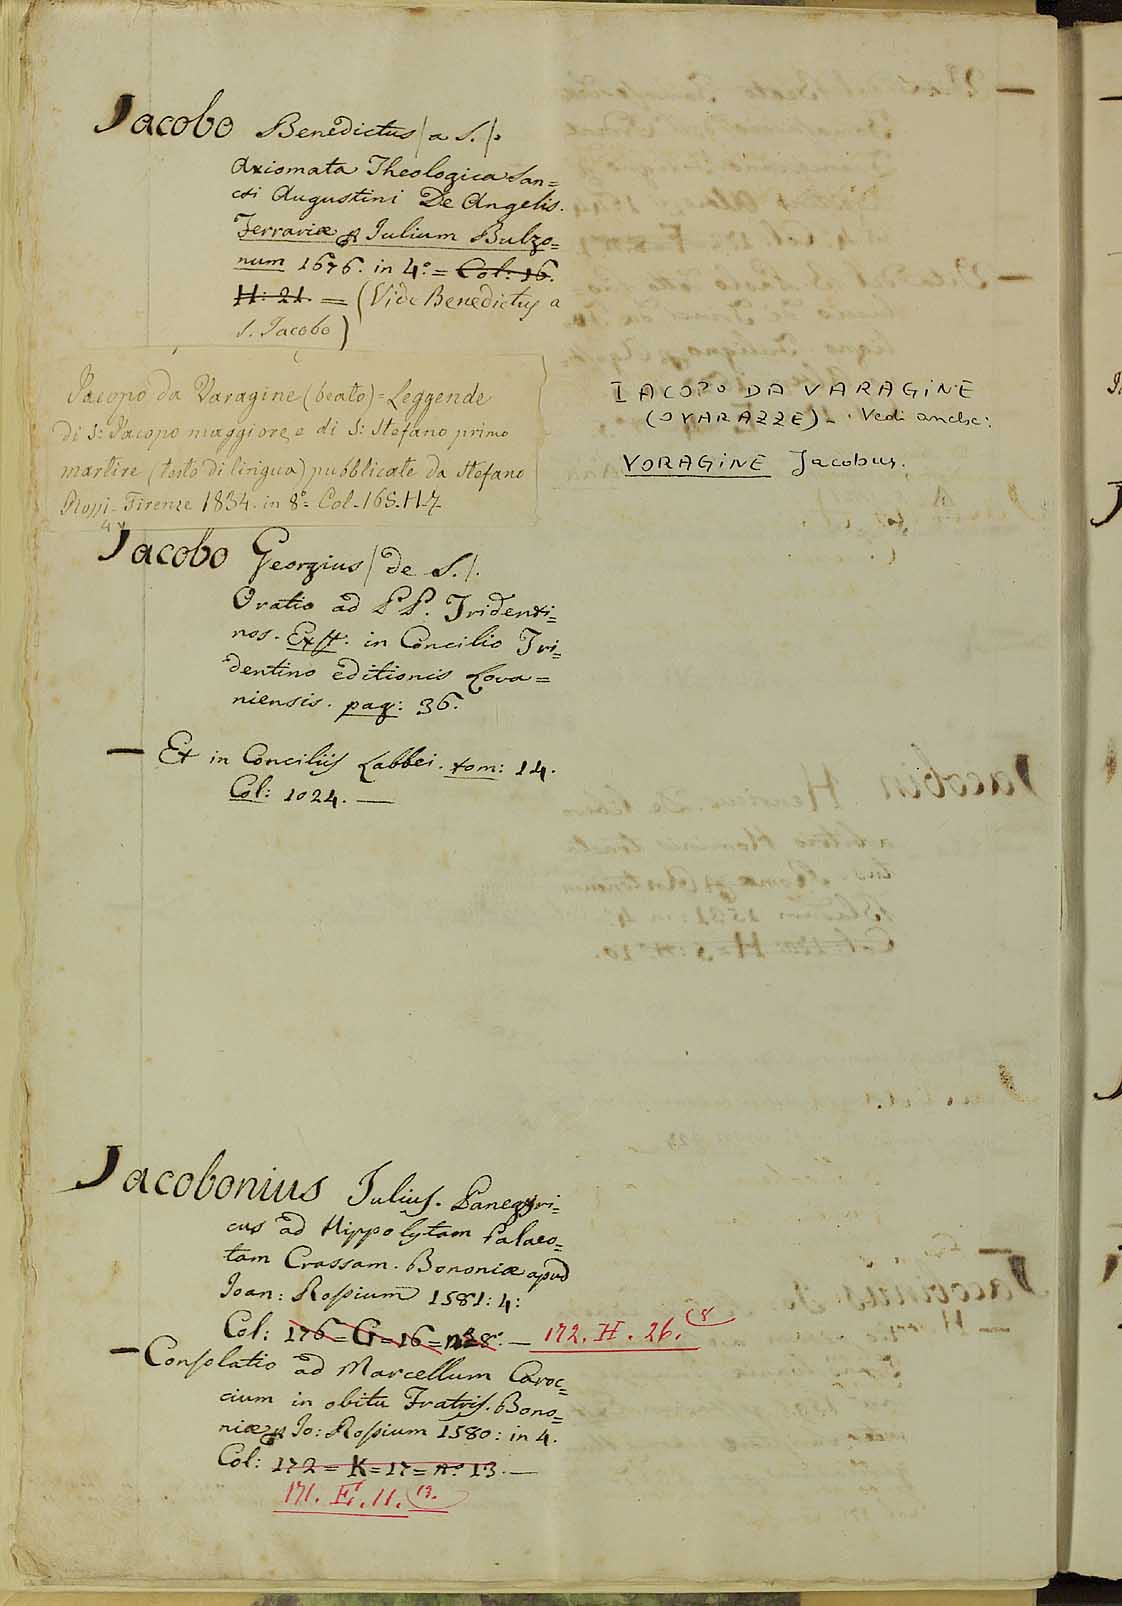 Jacobo Benedictus (a S.).
Axiomata Theologica San=
cti Augustini De Angelis.
Ferrariæ p Iulium Bulzo=
num 1676. in 4.º = Col: 16.
H: 21. = (Vide Benedictus a
S. Jacobo)
Jacopo da Varagine (beato) = Leggende
di S: Jacopo maggiore, e di S: Stefano primo
martire (testo di lingua) pubblicate da Stefano
Rossi - Firenze 1834. in 8º - Col. 168. H. 7.
IACOPO DA VARAGINE
(o VARAZZE) - Vedi anche:
VORAGINE Jacobus.
Jacobo Georgius (de S.).
Oratio ad PP. Tridenti=
nos. Exst. in Concilio Tri=
dentino editionis Lova=
niensis. pag: 36.
— Et in Conciliis Labbei. tom: 14.
Col: 1024. —
Jacobonius Julius. Panegyri=
cus ad Hippolytam Palaeo=
tam Crassam. Bononiæ apud
Ioan: Rossium 1581: 4:
Col: 176 = G = 16 = nº 8. — 172. H. 26. (8
— Consolatio ad Marcellum Caroc=
cium in obitu Fratris. Bono=
niæ p Io: Rossium 1580: in 4.
Col: 172 = K = 17 = nº 13. —
171. E. 11. (13.